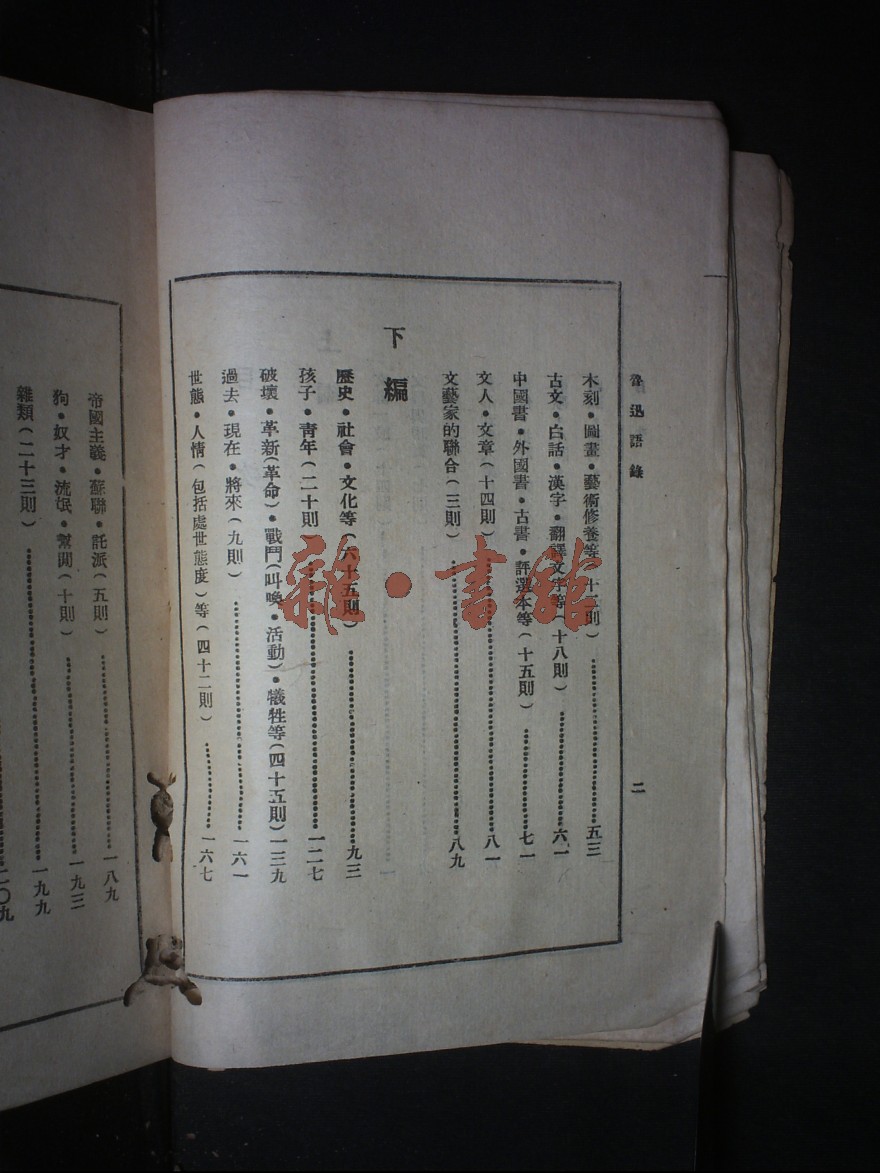 魯迅語錄
二
木刻•圖畫•藝術修養等(十二則)……五三
古文•白話•漢字•翻譯文字等(十八則)……六一
中國書•外國書•古書•評選本等(十五則)……七一
文人•文章(十四則)……八一
文藝家的聯合(三則)……八九
下編
歷史•社會•文化等(六十五則)……九三
孩子•青年(二十則)……一二七
破壞•革新(革命)•戰鬥(叫喚•活動)•犧牲等(四十五則)一三九
過去•現在•將來(九則)……一六一
世態•人情(包括處世態度)等(四十二則)……一六七
帝國主義•蘇聯•託派(五則)……一八九
狗•奴才•流氓•幫閒(十則)……一九三
雜類(二十三則)……一九九
二〇九
雜•書館